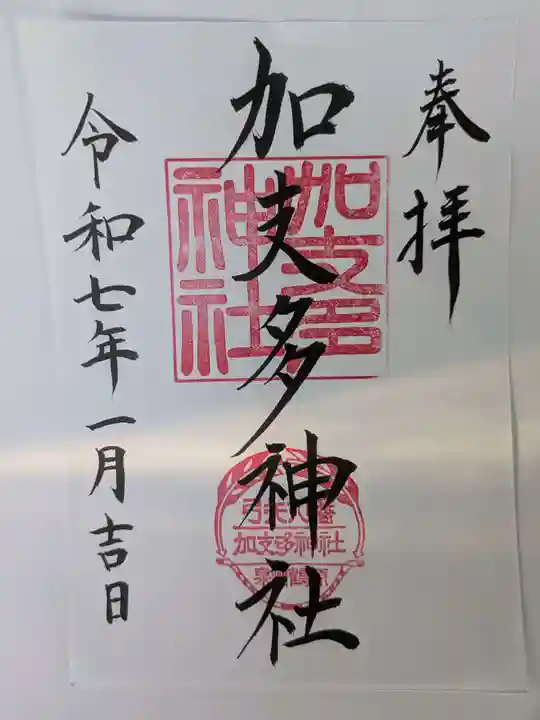 奉拝
加支多神社
加支多
神社
弓矢八幡
加支多神社
令和七年一月吉日